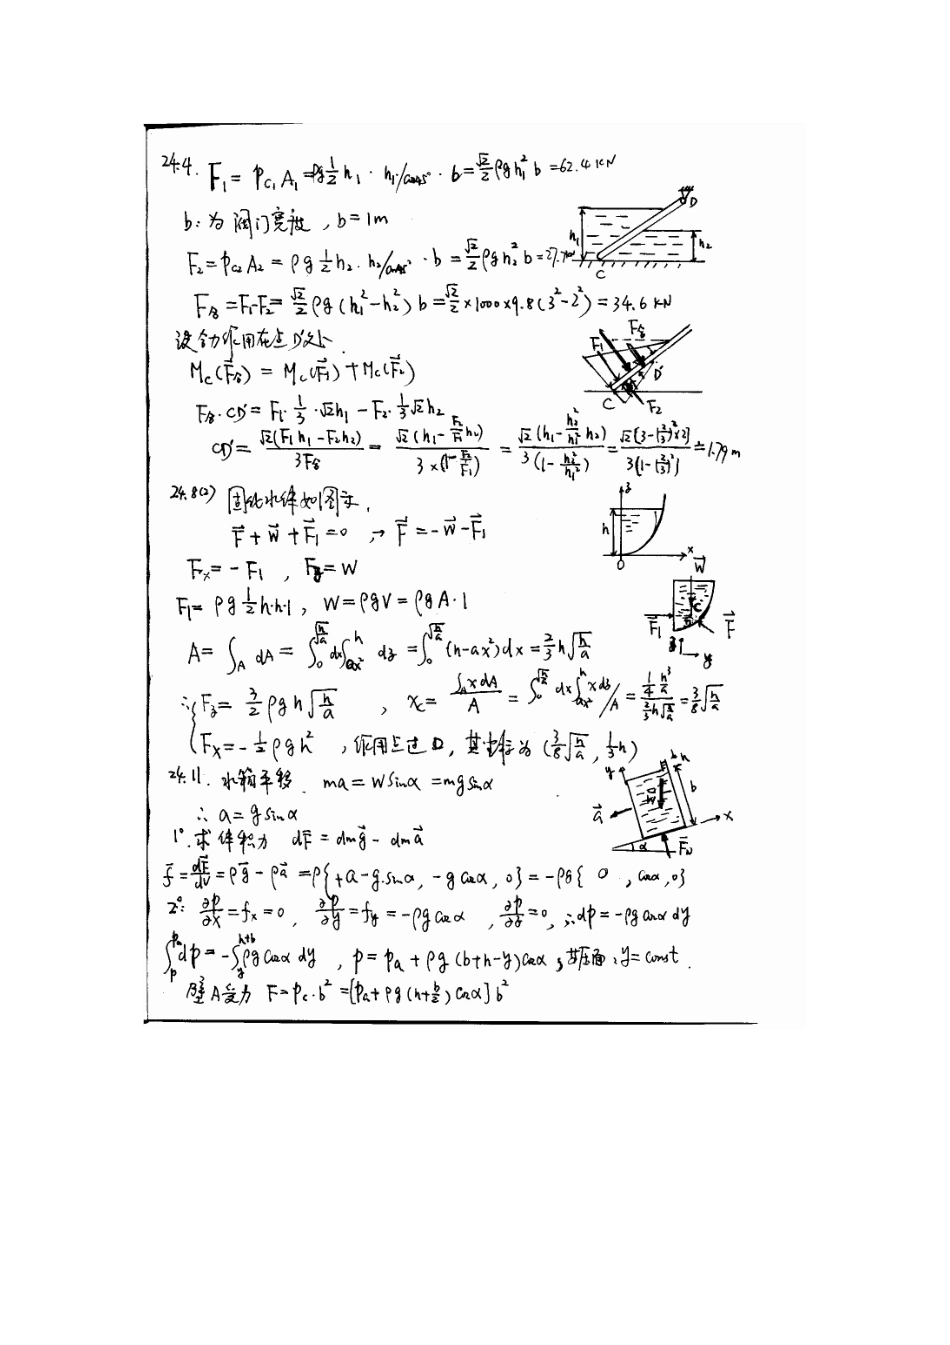 24.4. F₁ = p_{C₁}A₁ = ρg½h₁ · h₁/cos45° · b = √2/2 ρgh₁²b = 62.4 kN
b: 为闸门宽度, b = 1m
F₂ = p_{C₂}A₂ = ρg½h₂ · h₂/cos45° · b = √2/2 ρgh₂²b = 27.7kN
h₁ h₂ C D
F合 = F₁-F₂ = √2/2 ρg(h₁²-h₂²)b = √2/2 ×1000×9.8(3²-2²) = 34.6 kN
设合力作用在点D'处
F₁ F合 D' C F₂
M_C(F⃗合) = M_C(F⃗₁) + M_C(F⃗₂)
F合·CD' = F₁·⅓·√2h₁ - F₂·⅓√2h₂
CD' = √2(F₁h₁-F₂h₂)/3F合 = √2(h₁-F₂/F₁ h₂)/3×(1-F₂/F₁) = √2(h₁-h₂²/h₁² h₂)/3(1-h₂²/h₁²) = √2[3-(2/3)²×2]/3[1-(2/3)²] ≐ 1.79m
24.8(2) 固化水体如图示,
z h O x
F⃗ + W⃗ + F⃗₁ = 0 , → F⃗ = -W⃗ - F⃗₁
Fx = -F₁ , Fz = W
W⃗ C F⃗₁ F⃗
F₁ = ρg½h·h·1 , W = ρgV = ρgA·1
A = ∫_A dA = ∫₀^{√(h/a)} dx∫_{ax²}^h dz = ∫₀^{√(h/a)} (h-ax²)dx = ⅔h√(h/a)
∴ { Fz = ⅔ρgh√(h/a) , x_C = ∫_A xdA / A = ∫₀^{√(h/a)} dx∫_{ax²}^h xdz / A = ¼ h²/a / ⅔h√(h/a) = ⅜√(h/a)
Fx = -½ρgh² , 作用点过D, 其坐标为 (⅜√(h/a), ⅓h)
24.11. 水箱平移. ma = Wsinα = mg sinα
y h b a⃗ W⃗ x α F⃗_N
∴ a = g sinα
1°. 求体积力 dF⃗ = dmg⃗ - dma⃗
f⃗ = dF⃗/dV = ρg⃗ - ρa⃗ = ρ{+a-g·sinα, -g cosα, 0} = -ρg{0, cosα, 0}
2°: ∂p/∂x = fx = 0 , ∂p/∂y = fy = -ρg cosα , ∂p/∂z = 0, ∴ dp = -ρg cosα dy
∫_p^{pa} dp = -∫_y^{h+b} ρg cosα dy , p = pa + ρg(b+h-y)cosα ; 等压面: y = const.
3° 壁A受力 F = p_C·b² = [pa + ρg(h+b/2)cosα]b²